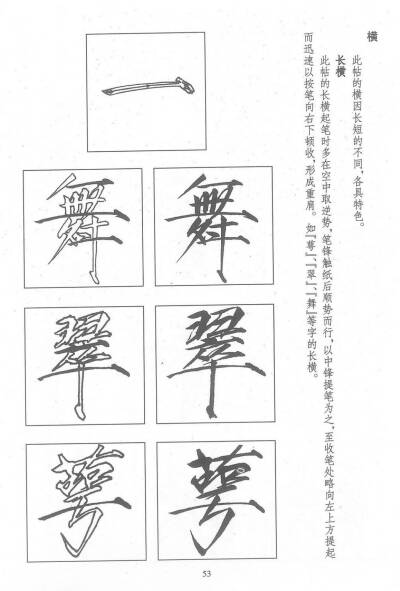 横
此帖的横因长短的不同，各具特色。
长横
此帖的长横起笔时多在空中取逆势，笔锋触纸后顺势而行，以中锋提笔为之，至收笔处略向左上方提起
而迅速以按笔向右下顿收，形成重肩。如『萼』、『翠』、『舞』等字的长横。
一
舞 舞
翠 翠
萼 萼
53